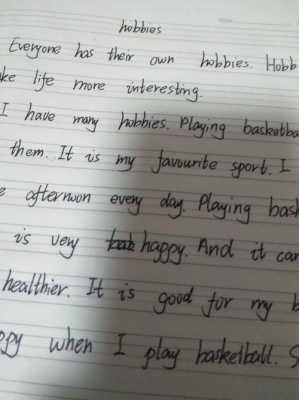 hobbies
Everyone has their own hobbies. Hobb
ke life more interesting.
I have many hobbies. Playing basketba
them. It is my favourite sport. I
e afternoon every day. Playing bask
is very happy. And it can
healthier. It is good for my b
ppy when I play basketball. S